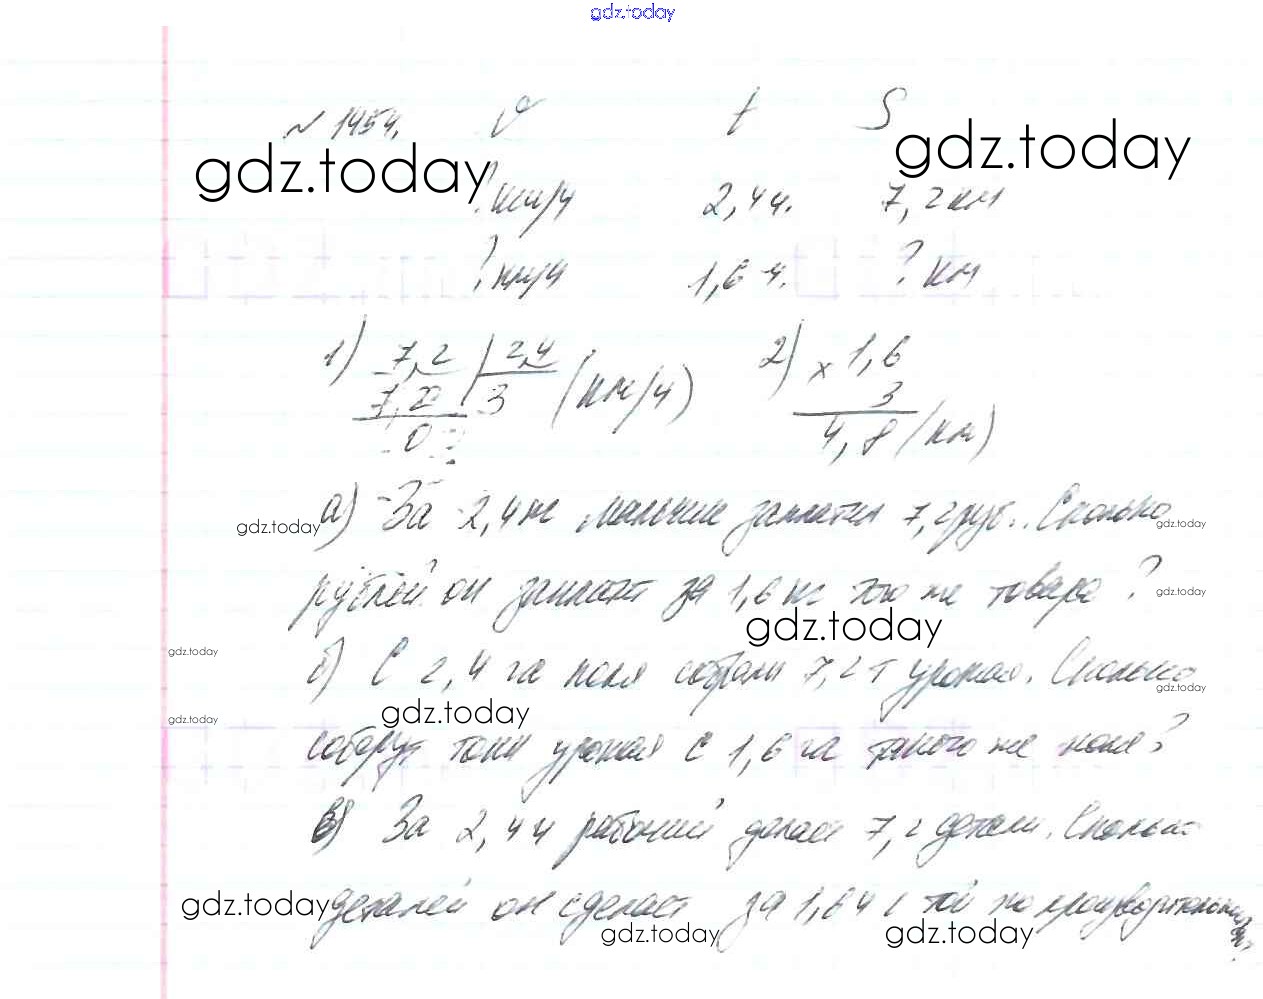 gdz.today
№ 1454. v t S
gdz.today gdz.today
? км/ч 2,4 ч. 7,2 км
? км/ч 1,6 ч. ? км
1) 7,2 | 2,4 2) × 1,6
7,2 3 (км/ч) 3
0 4,8 (км)
а) За 2,4 кг мальчик заплатил 7,2 руб. Сколько
gdz.today gdz.today
рублей он заплатит за 1,6 кг того же товара?
gdz.today gdz.today
б) С 2,4 га поля собрали 7,2 т урожая. Сколько
gdz.today gdz.today
gdz.today gdz.today
соберут тонн урожая с 1,6 га такого же поля?
в) За 2,4 ч рабочий делает 7,2 детали. Сколько
gdz.today деталей он сделает за 1,6 ч с той же
gdz.today gdz.today